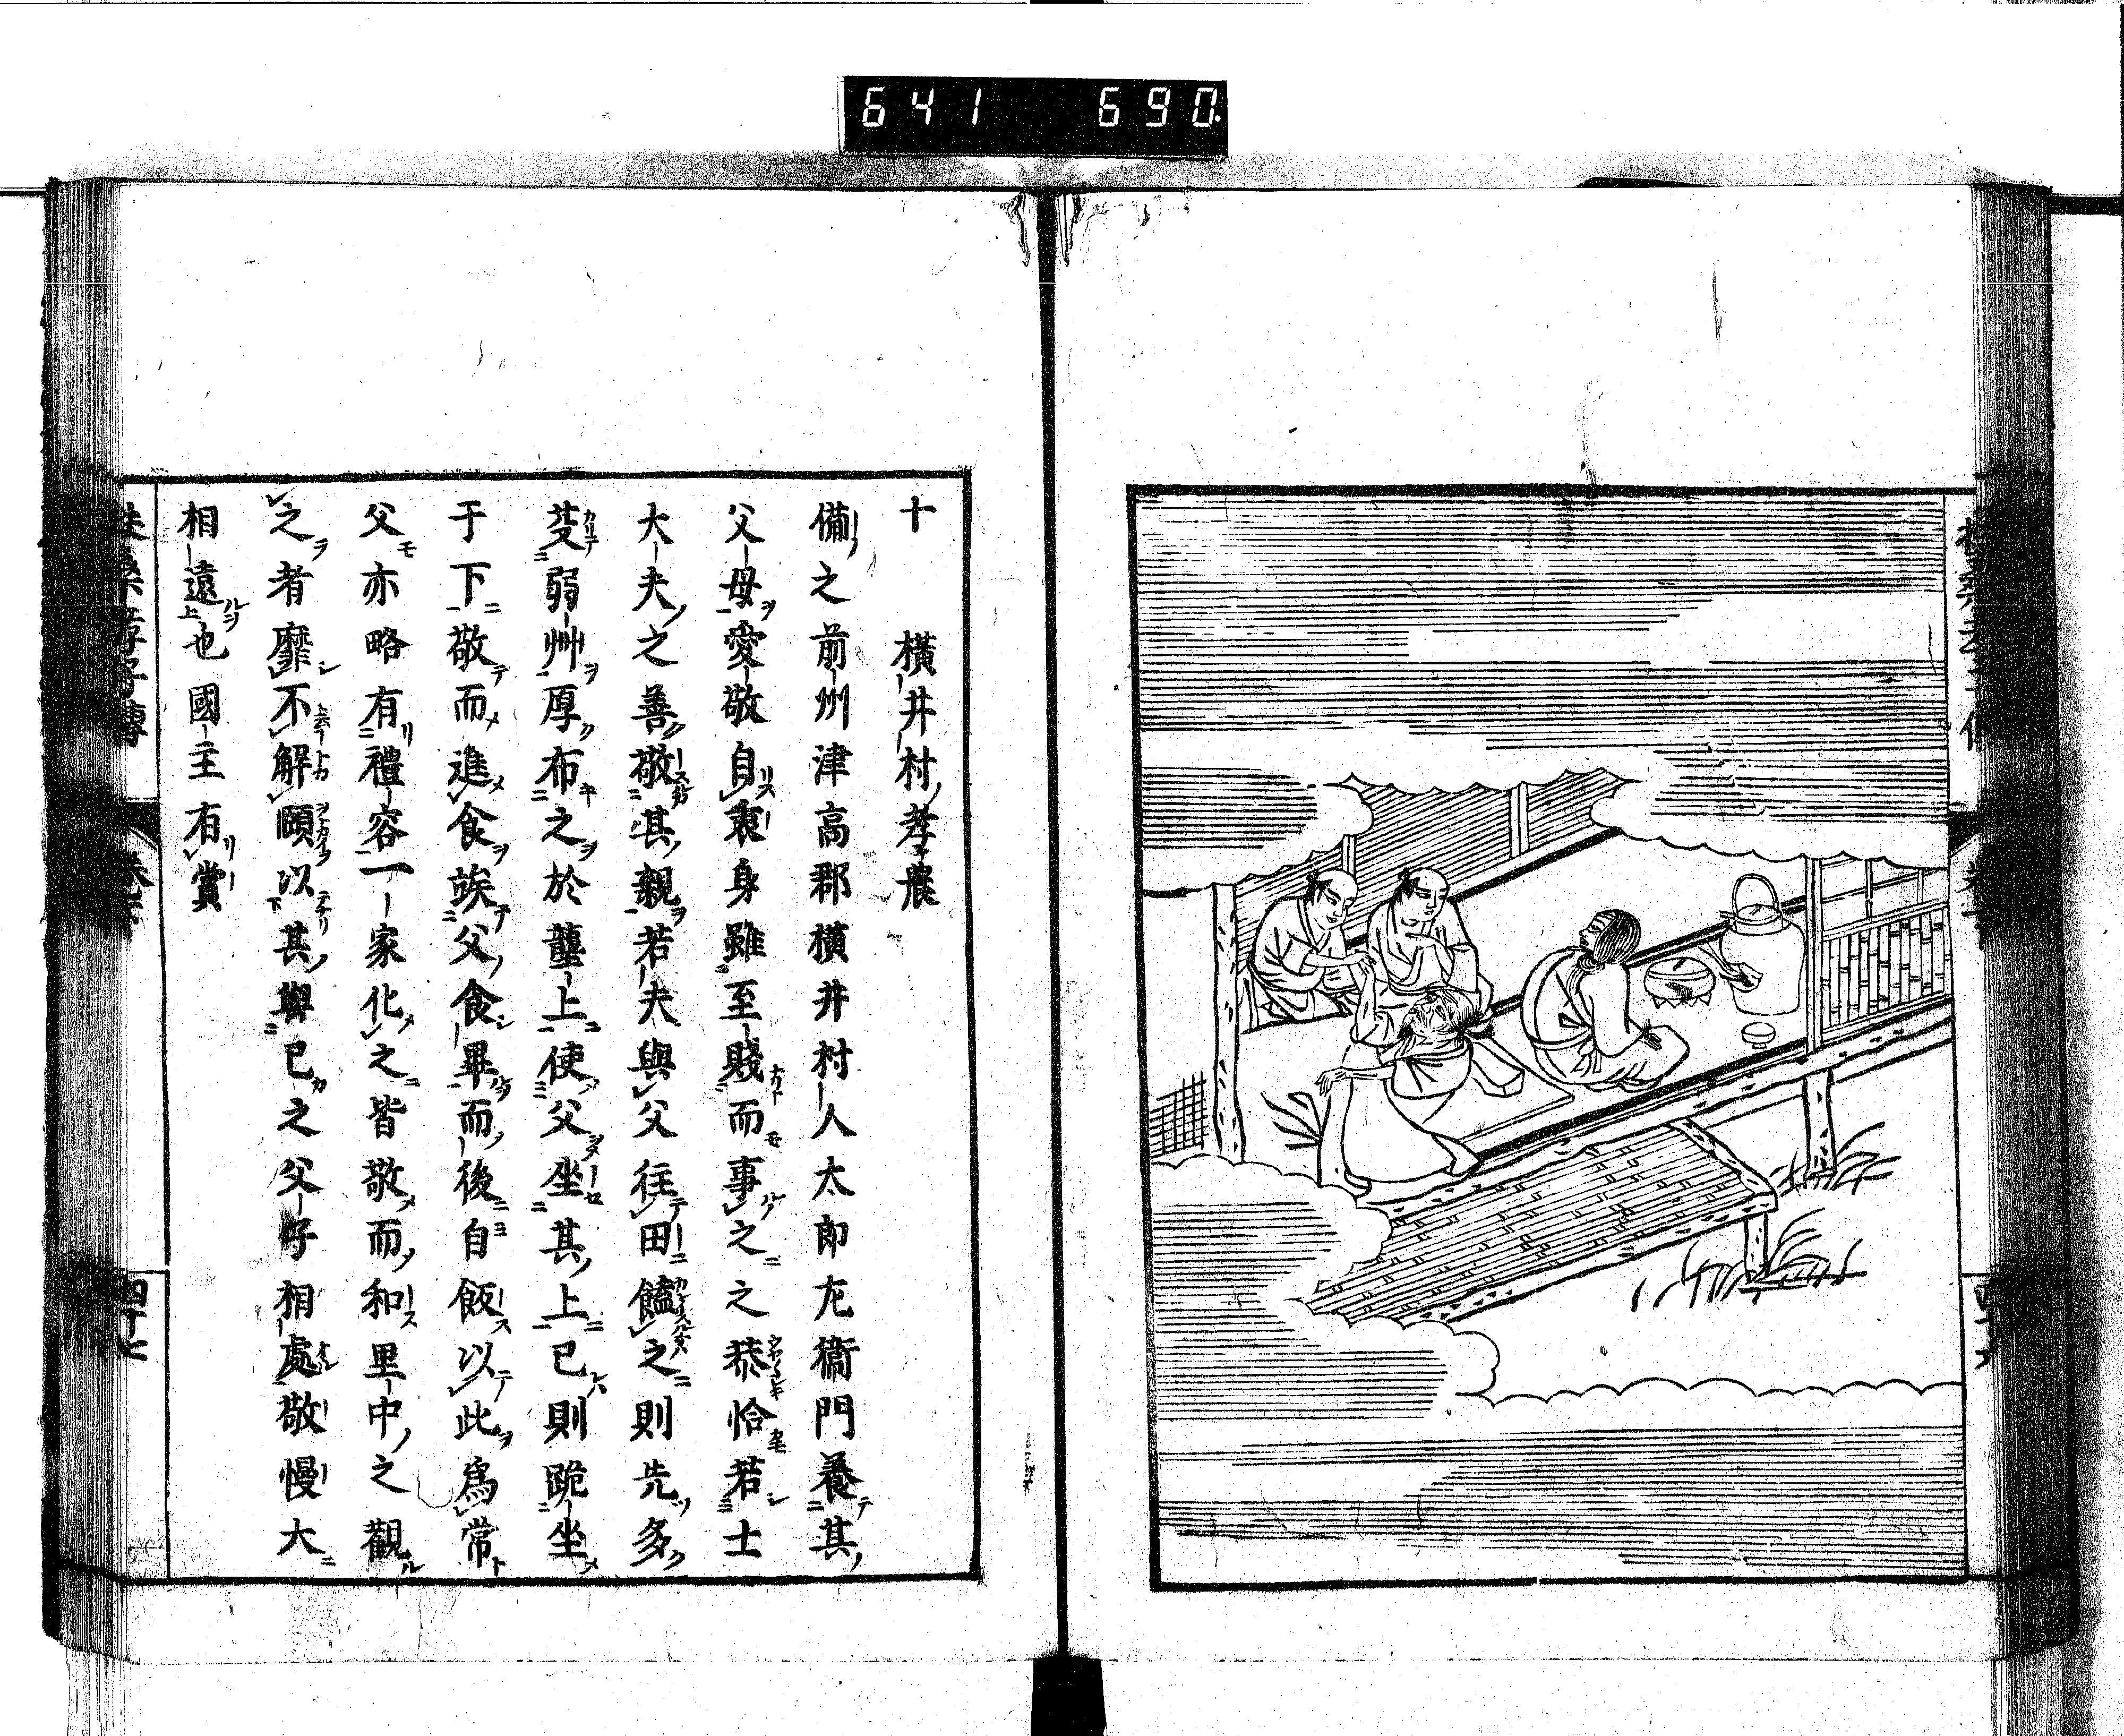 641 690
十 橫井村孝農
備之前州津高郡橫井村人太郎左衛門養其
父母愛敬自衷身雖至賤而事之之恭恰若士
大夫之善敬其親若夫與父往田饁之則先多
芟弱艸厚布之於壟上使父坐其上已則跪坐
于下敬而進食竢父食畢而後自飯以此爲常
父亦略有禮容一家化之皆敬而和里中之觀
之者靡不解頤以其與已之父子相處敬慢大
相遠也國主有賞
扶桑孝子傳
四十七